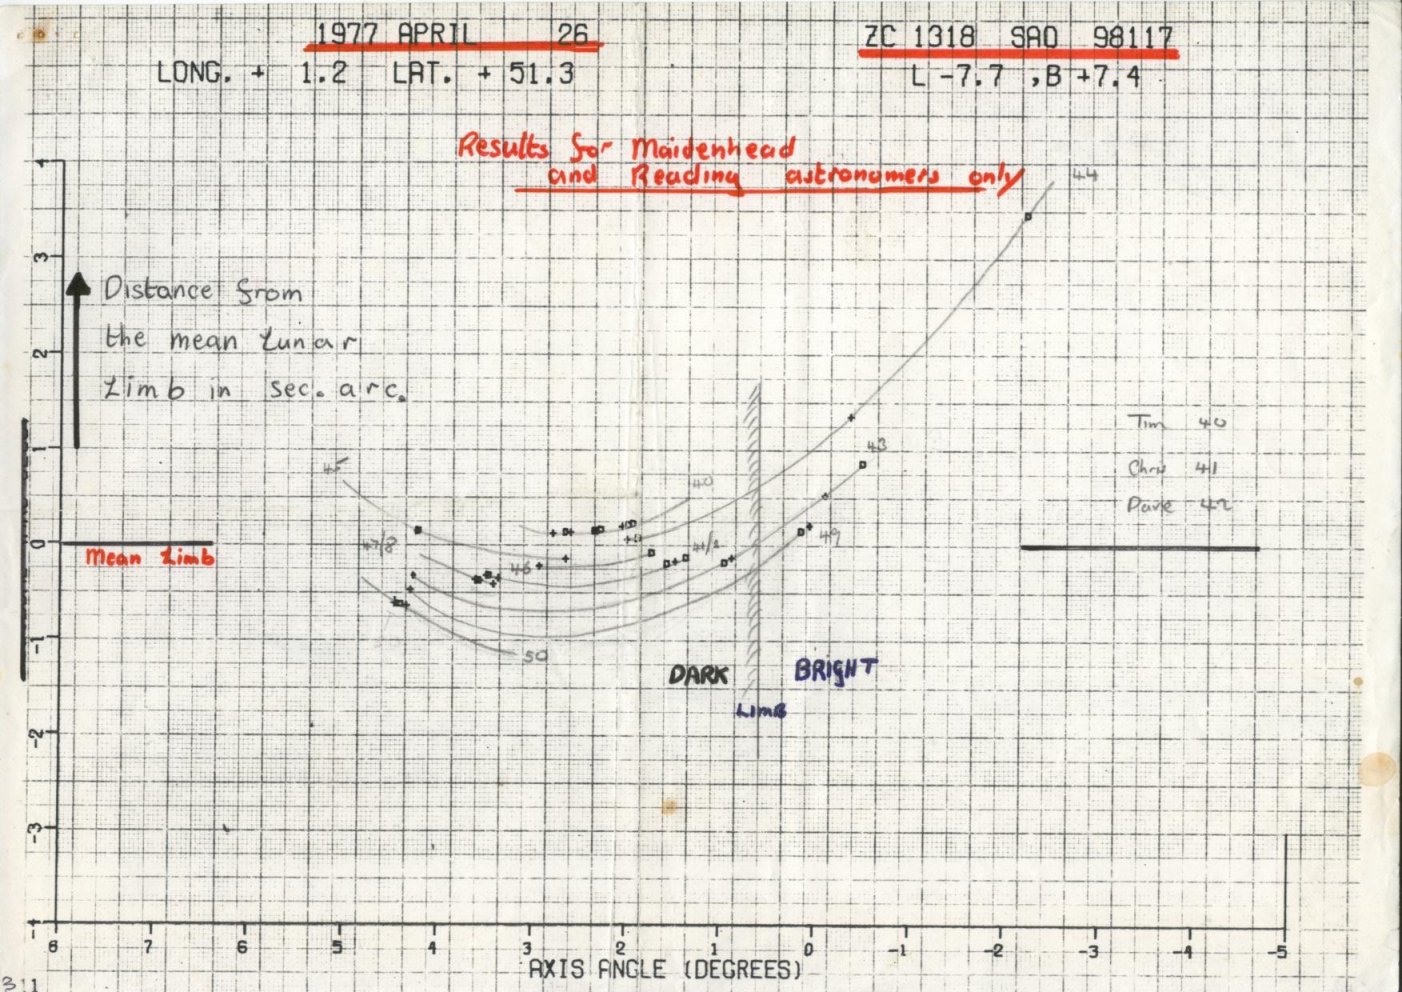 1977 APRIL 26
ZC 1318 SAO 98117
LONG. + 1.2 LAT. + 51.3
L -7.7 ,B +7.4
Results for Maidenhead
and Reading astronomers only
44
4
3
Distance from
the mean Lunar
Limb in sec. arc.
2
1
Tim 40
Chris 41
Dave 42
43
45
40
47/8
46
41/2
49
0
Mean Limb
50
-1
DARK
BRIGHT
LIMB
-2
-3
-4
8 7 6 5 4 3 2 1 0 -1 -2 -3 -4 -5
AXIS ANGLE (DEGREES)